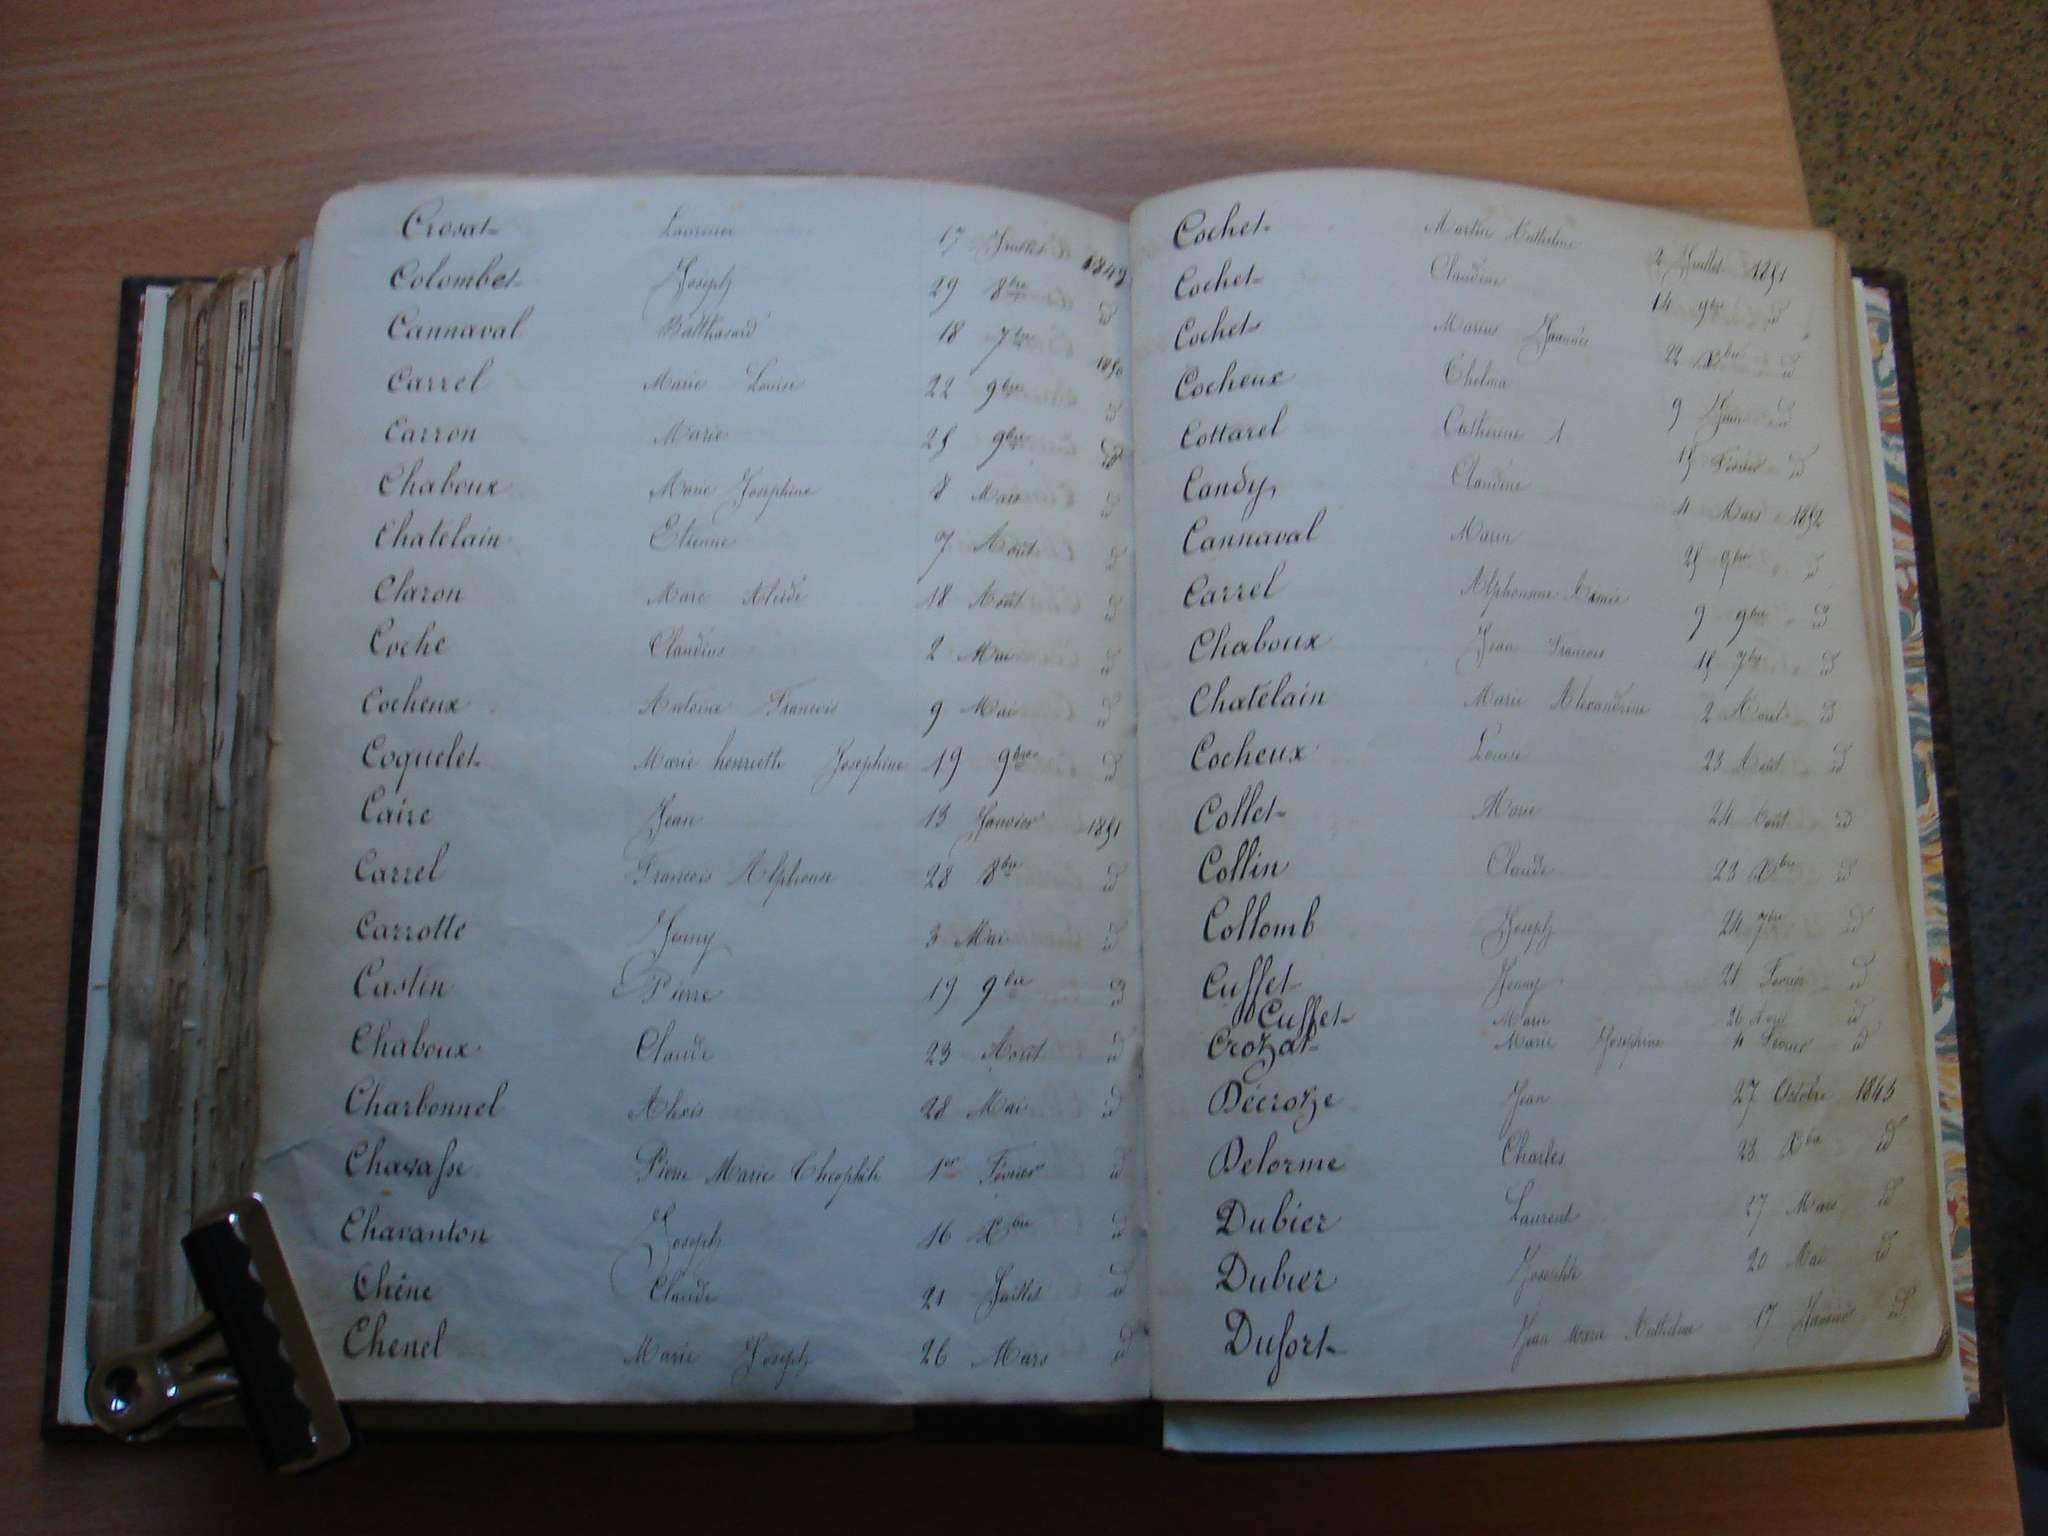 Crosat 17 1849
Colombet Joseph 29 8bre id
Cannaval Balthasard 18 7bre 1850
Carrel Marie Louise 22 9bre id
Carron Marie 25 9bre id
Chaboux Marie Joséphine 8 Mars id
Chatelain Etienne 7 Août id
Claron Marc 18 Août id
Coche Claudius 2 Mai id
Cocheux Antoine François 9 Mai id
Coquelet Marie henriette Josephine 19 9bre id
Caire Jean 13 Janvier 1851
Carrel François Alphonse 28 8bre id
Carrotte Jenny 3 Mai id
Castin Pierre 19 9bre id
Chaboux Claude 23 Août id
Charbonnel Alexis 28 Mai id
Chavasse Pierre Marie Théophile 1er Février id
Chavanton Joseph 16 Xbre id
Chêne Claude 21 Juillet id
Chenel Marie Joseph 26 Mars id
Cochet Martin Anthelme 2 Juillet 1851
Cochet Claudine 14 9bre id
Cochet Marius Joannès 22 Xbre id
Cocheux Thelma 9 id
Cottarel Catherine 15 Février id
Candy Claudine 4 Mars 1852
Cannaval Marin 25 9bre id
Carrel Alphonsine Aimée 9 9bre id
Chaboux Jean François 15 7bre id
Chatelain Marie Alexandrine 2 Août id
Cocheux Louise 23 Août id
Collet Marie 24 Août id
Collin Claude 23 Xbre id
Collomb Joseph 24 7bre id
Cuffet Jenny 21 Février id
Cuffet Marie 26 Avril id
Crozat Marie Joséphine 4 Février id
Décroze Jean 27 Octobre 1843
Delorme Charles 28 Xbre id
Dubier Laurent 27 Mars id
Dubier Josephte 20 Mai id
Dufort Jean Marie Anthelme 17 Janvier id